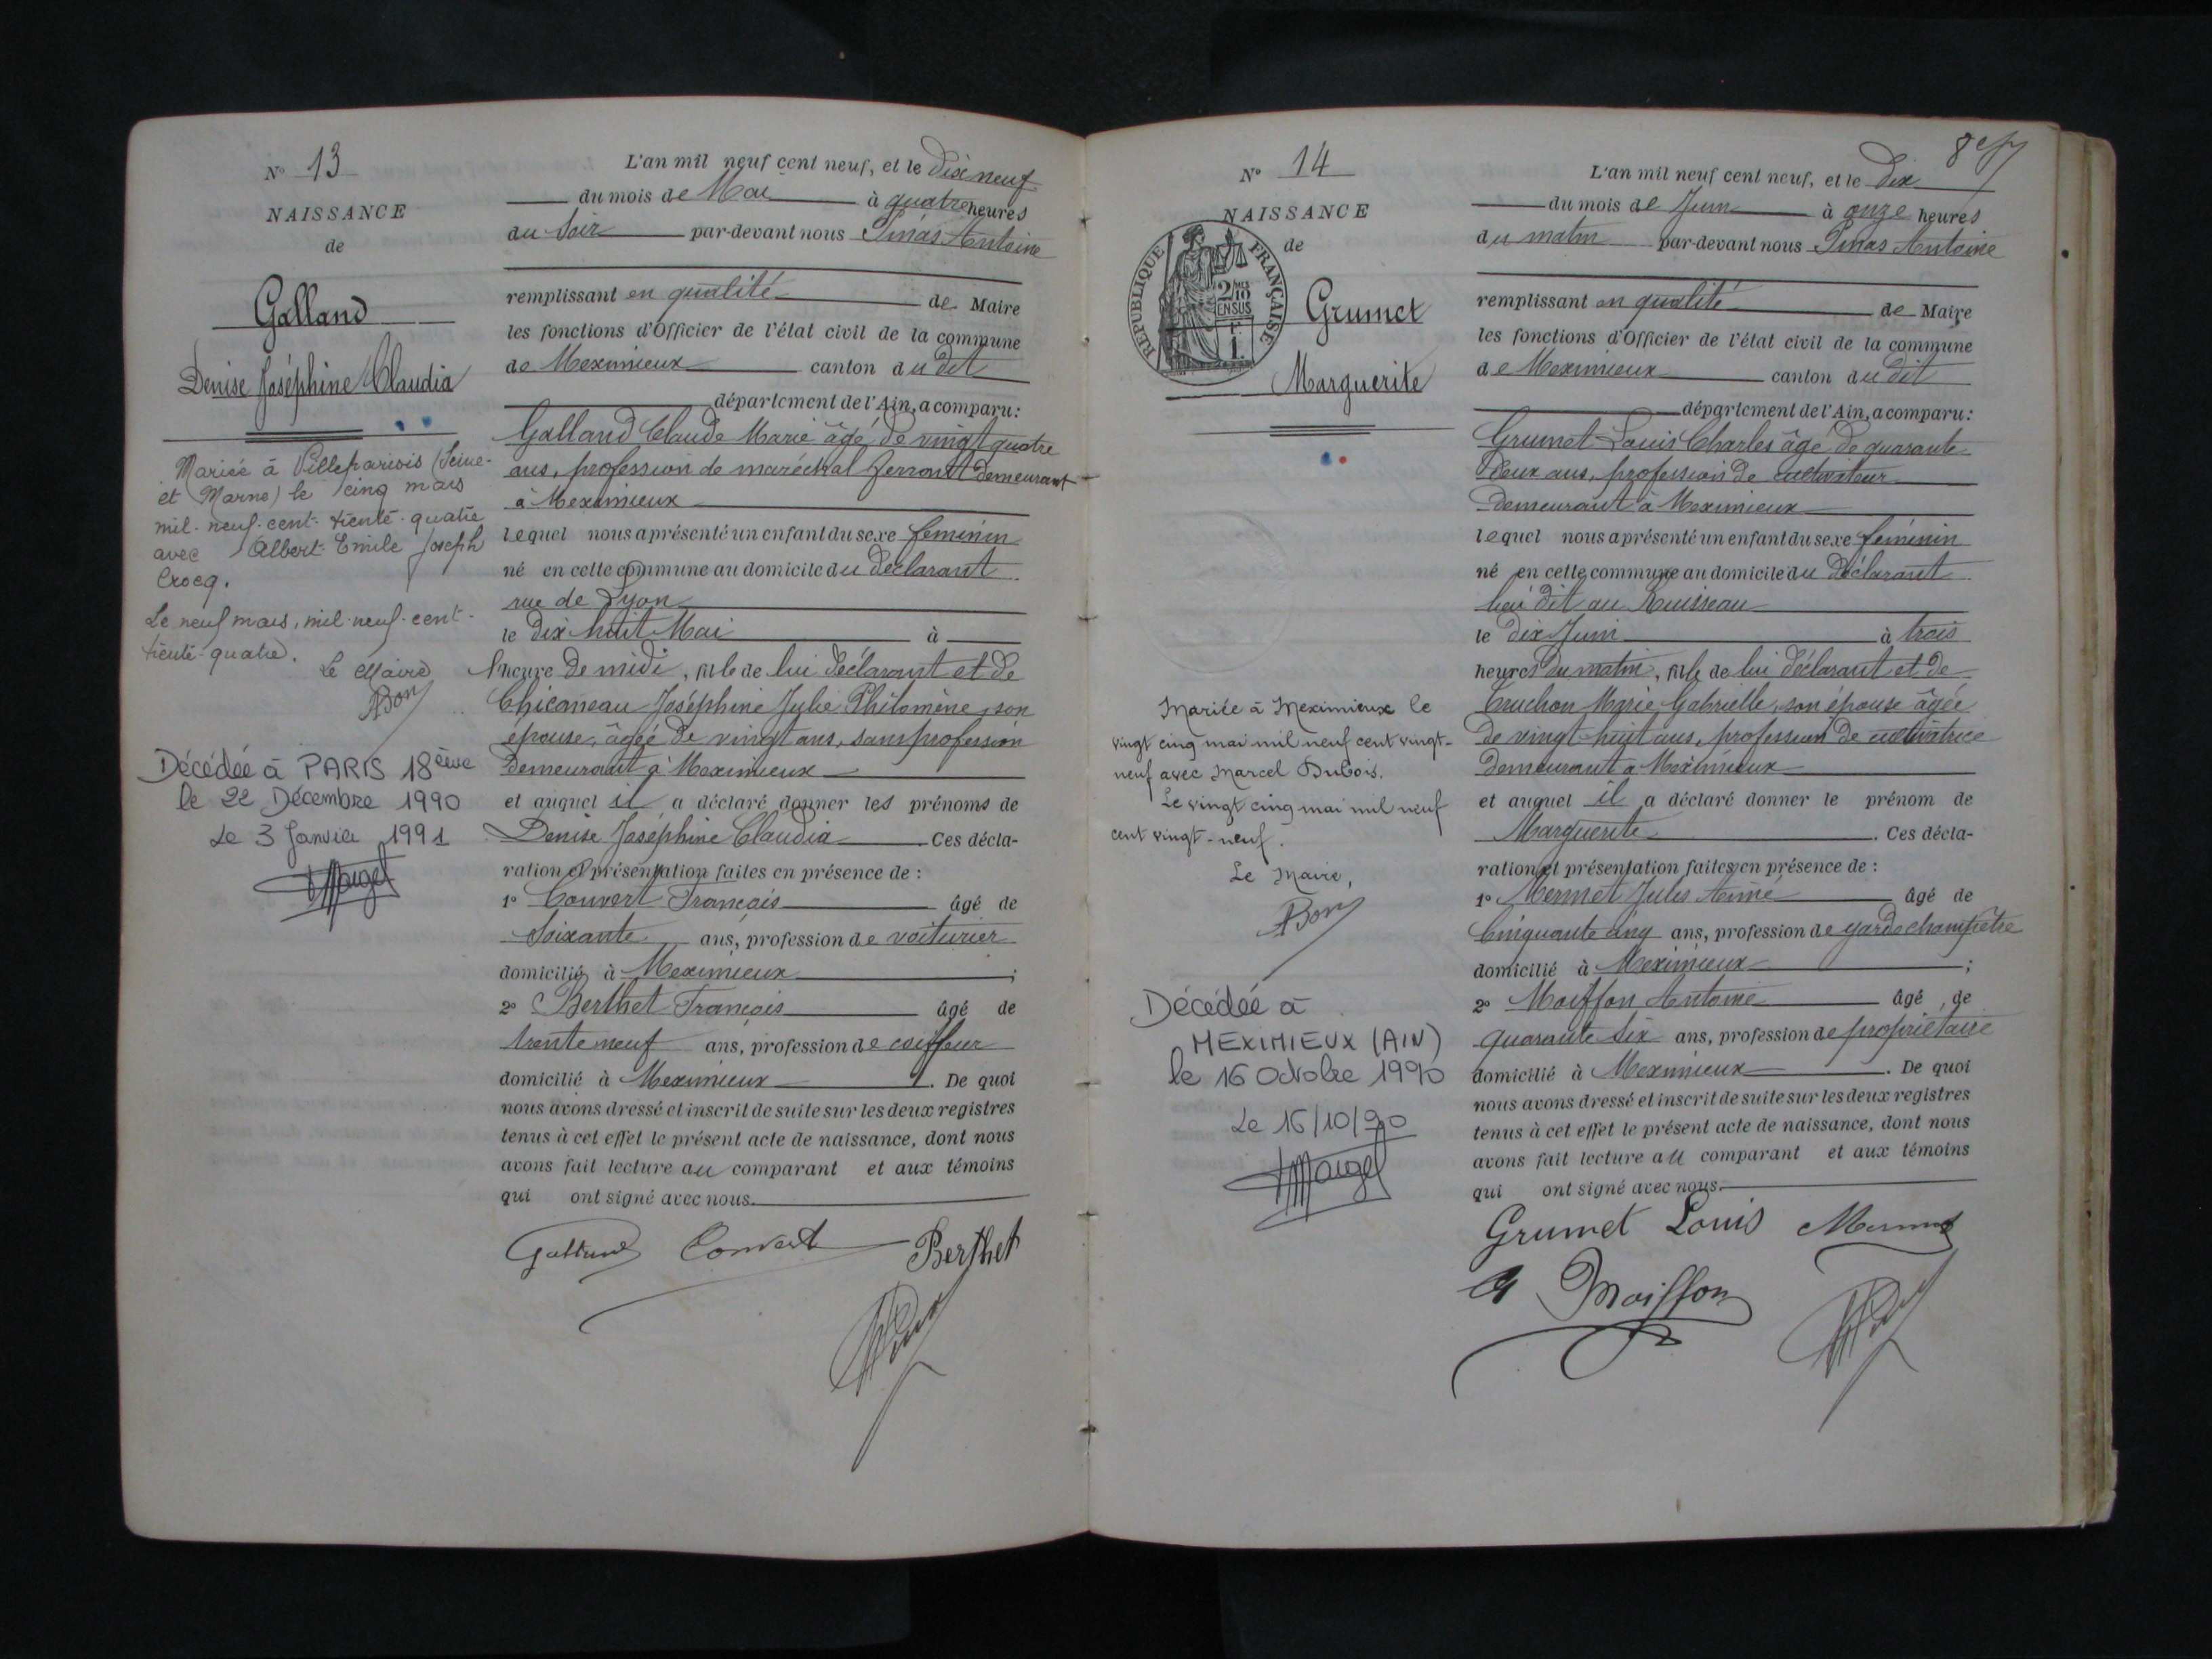 N° 13
NAISSANCE
de
Galland
Denise Joséphine Claudia
Mariée à Villeparisis (Seine-
et Marne) le cinq mars
mil-neuf-cent-trente-quatre
avec Albert Emile Joseph
Crocq.
Le neuf mars, mil-neuf-cent-
trente-quatre.
Le Maire
Bon
Décédée à PARIS 18ème
le 22 Décembre 1990
Le 3 Janvier 1991
L'an mil neuf cent neuf, et le dix neuf
du mois de Mai à quatre heures
du soir par-devant nous Pinas Antoine
remplissant en qualité de Maire
les fonctions d'Officier de l'état civil de la commune
de Meximieux canton du dit
département de l'Ain, a comparu:
Galland Claude Marie âgé de vingt quatre
ans, profession de maréchal ferrant demeurant
à Meximieux
lequel nous a présenté un enfant du sexe féminin
né en cette commune au domicile du déclarant
rue de Lyon
le dix huit Mai à
l'heure de midi, fille de lui déclarant et de
Chicaneau Joséphine Julie Philomène, son
épouse, âgée de vingt ans, sans profession
demeurant à Meximieux
et auquel il a déclaré donner les prénoms de
Denise Joséphine Claudia Ces décla-
ration et présentation faites en présence de :
1° Convert François âgé de
soixante ans, profession de voiturier
domicilié à Meximieux ;
2° Berthet François âgé de
trente neuf ans, profession de coiffeur
domicilié à Meximieux . De quoi
nous avons dressé et inscrit de suite sur les deux registres
tenus à cet effet le présent acte de naissance, dont nous
avons fait lecture au comparant et aux témoins
qui ont signé avec nous.
Galland Convert Berthet
8e
N° 14
NAISSANCE
de
REPUBLIQUE FRANÇAISE
2/10
EN SUS
Grumet
Marguerite
Mariée à Meximieux le
vingt cinq mai mil neuf cent vingt-
neuf avec Marcel Dubois.
Le vingt cinq mai mil neuf
cent vingt-neuf.
Le Maire,
Bon
Décédée à
MEXIMIEUX (AIN)
le 16 Octobre 1990
Le 16/10/90
L'an mil neuf cent neuf, et le dix
du mois de Juin à onze heures
du matin par-devant nous Pinas Antoine
remplissant en qualité de Maire
les fonctions d'Officier de l'état civil de la commune
de Meximieux canton du dit
département de l'Ain, a comparu:
Grumet Louis Charles âgé de quarante
deux ans, profession de cultivateur
demeurant à Meximieux
lequel nous a présenté un enfant du sexe féminin
né en cette commune au domicile du déclarant
lieu dit au Ruisseau
le dix Juin à trois
heures du matin, fille de lui déclarant et de
Cruchon Marie Gabrielle, son épouse âgée
de vingt-huit ans, profession de cultivatrice
demeurant à Meximieux
et auquel il a déclaré donner le prénom de
Marguerite . Ces décla-
ration et présentation faites en présence de :
1° Mermet Jules Aimé âgé de
Cinquante cinq ans, profession de garde champêtre
domicilié à Meximieux ;
2° Moiffon Antoine âgé de
quarante six ans, profession de propriétaire
domicilié à Meximieux . De quoi
nous avons dressé et inscrit de suite sur les deux registres
tenus à cet effet le présent acte de naissance, dont nous
avons fait lecture au comparant et aux témoins
qui ont signé avec nous.
Grumet Louis Mermet
A Moiffon